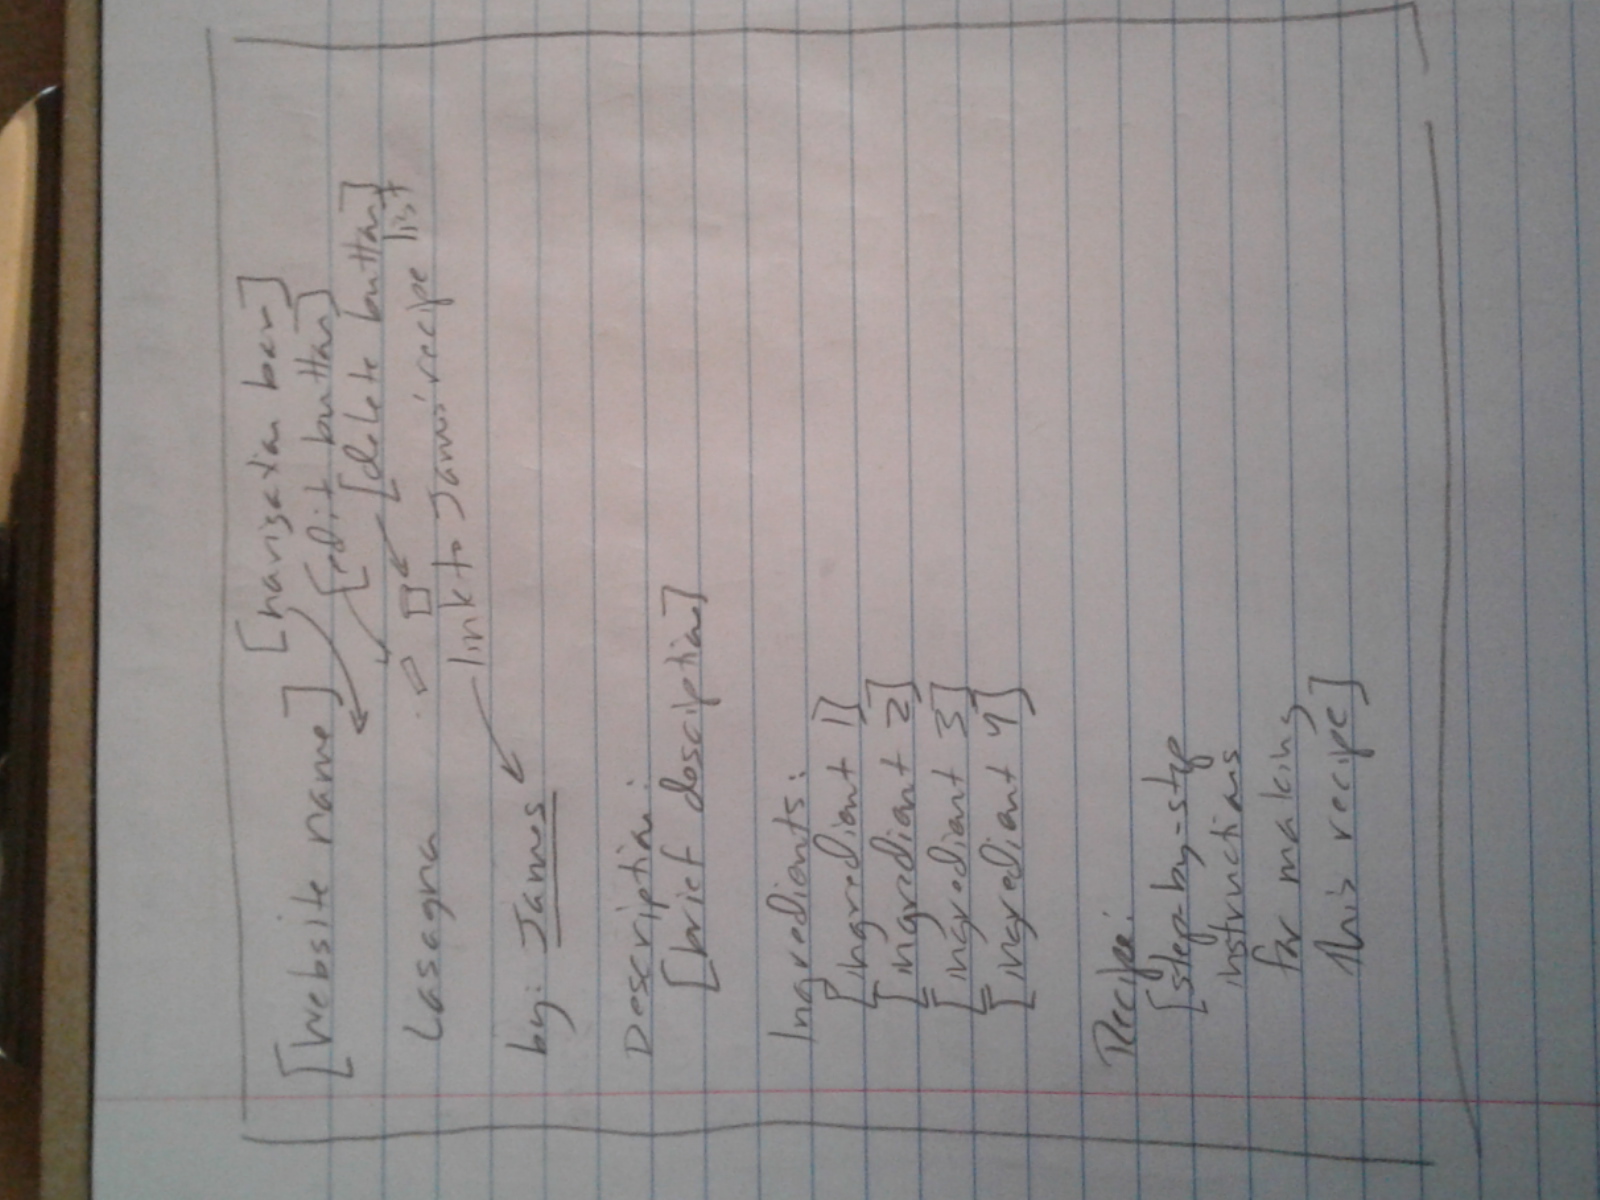 [Website name]
[navigation bar]
[edit button]
[delete button]
Lasagna
link to James' recipe list
by: James
Description:
[brief desciption]
Ingredients:
[ingredient 1]
[ingredient 2]
[ingredient 3]
[ingredient 4]
Recipe:
[step-by-step
instructions
for making
this recipe]